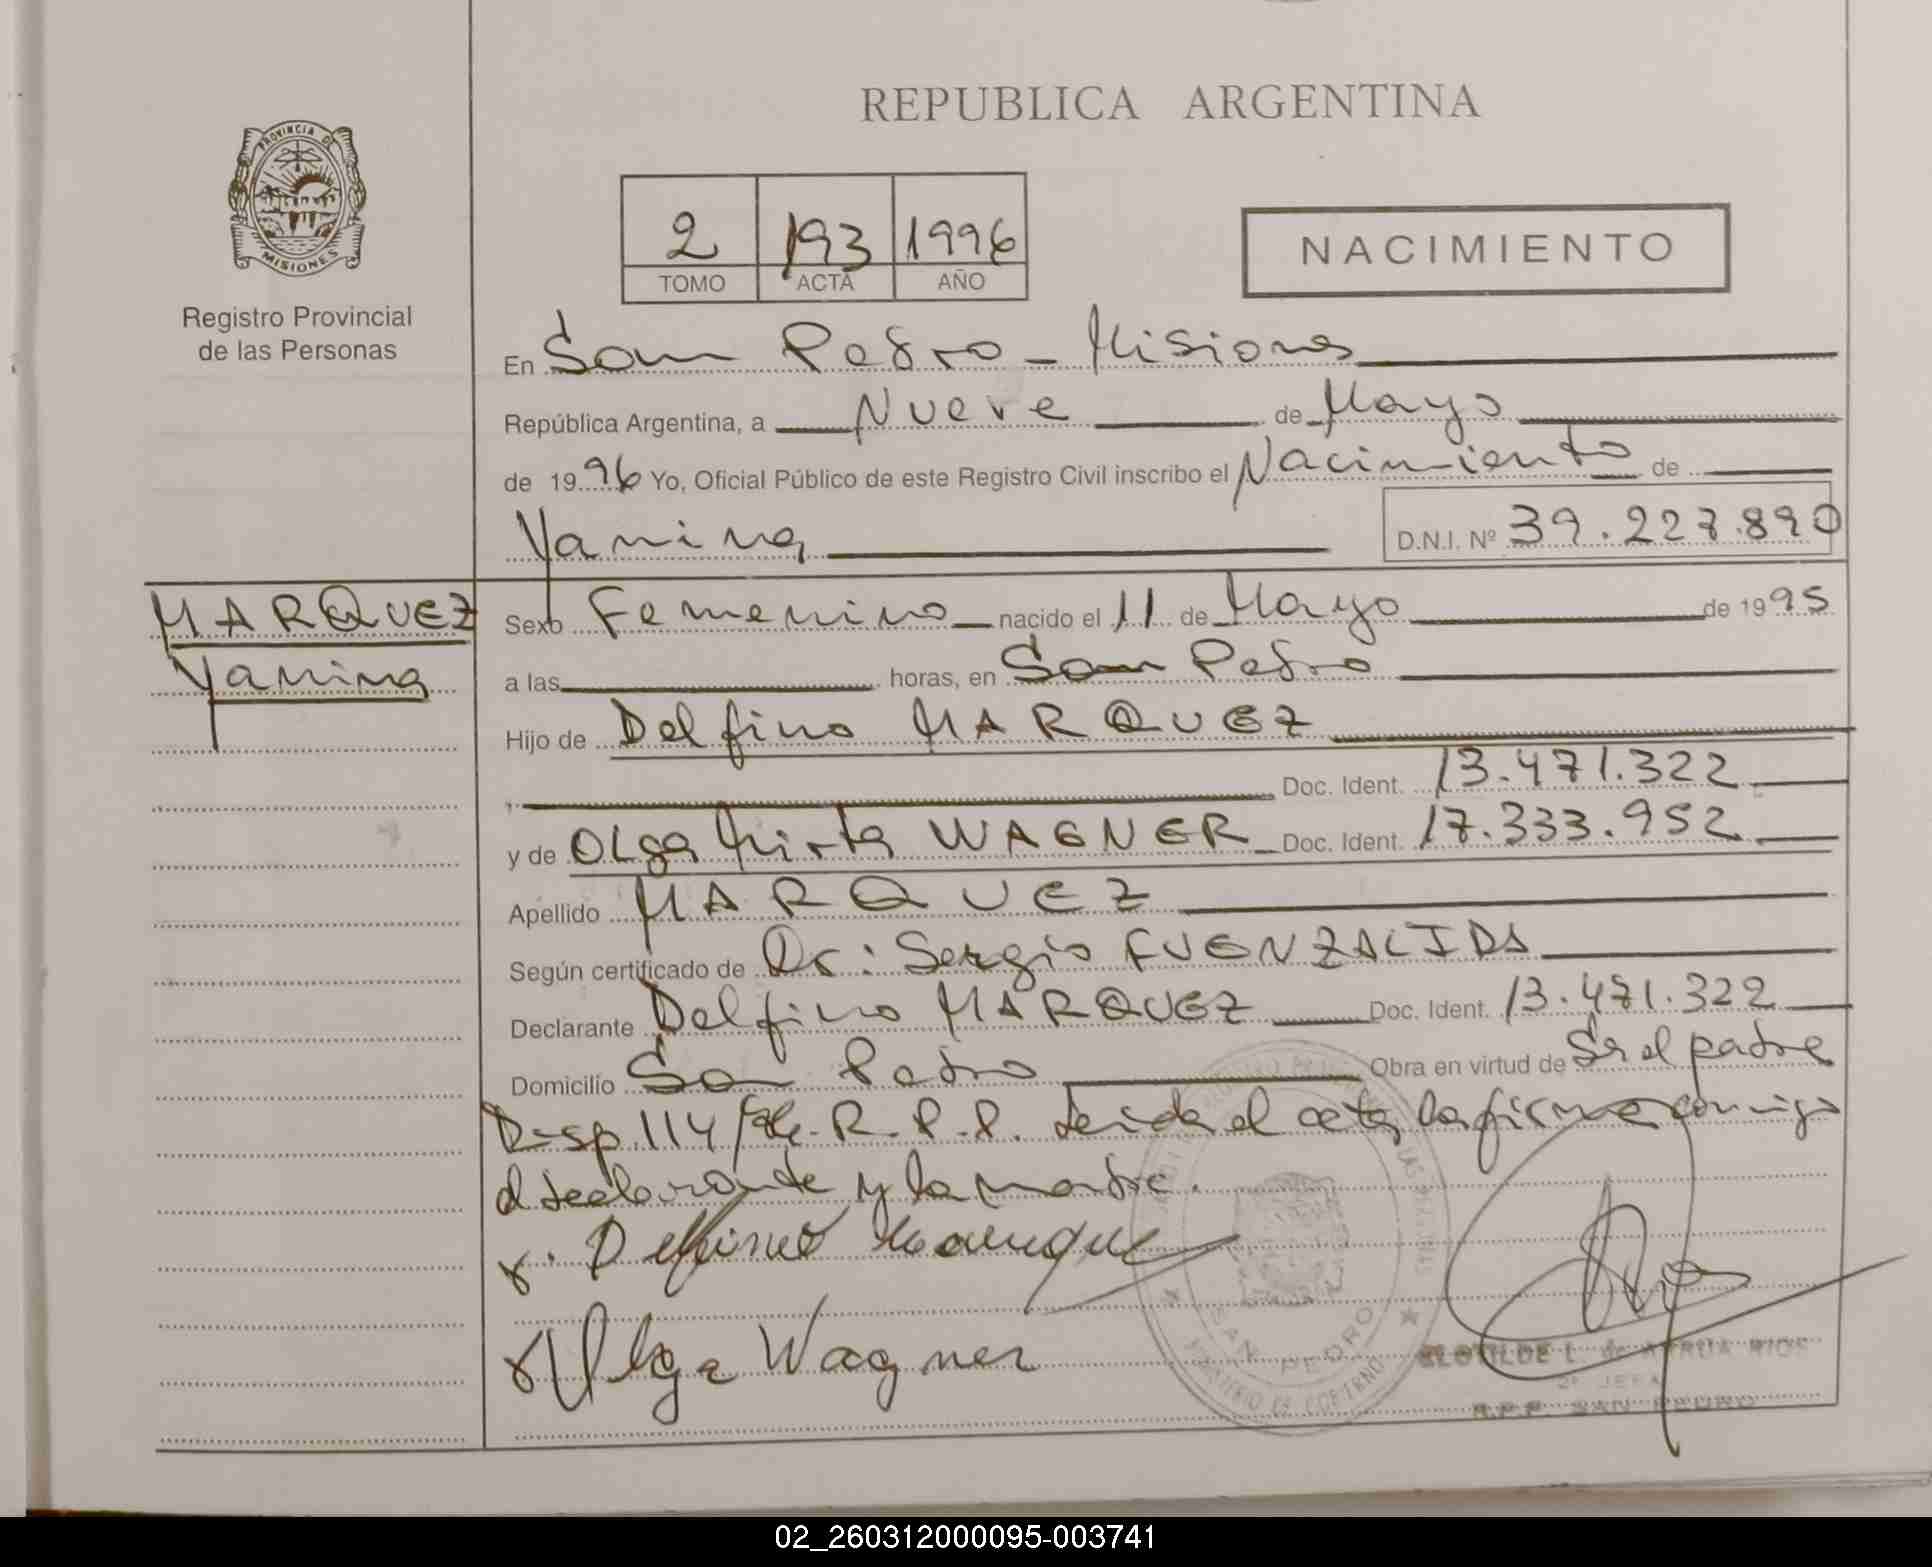 REPUBLICA ARGENTINA
PROVINCIA DE
MISIONES
Registro Provincial
de las Personas
2 193 1996
TOMO ACTA AÑO
NACIMIENTO
En San Pedro - Misiones
República Argentina, a Nueve de Mayo
de 1996 Yo, Oficial Público de este Registro Civil inscribo el Nacimiento de
Yanina D.N.I. Nº 39.227.890
MARQUEZ
Yanina
Sexo Femenino nacido el 11 de Mayo de 1995
a las horas, en San Pedro
Hijo de Delfino MARQUEZ
Doc. Ident. 13.471.322
y de OLga Mirta WAGNER Doc. Ident. 17.333.952
Apellido MARQUEZ
Según certificado de Dr: Sergio FUENZALIDA
Declarante Delfino MARQUEZ Doc. Ident. 13.471.322
Domicilio San Pedro Obra en virtud de Ser el padre
Disp. 114/ R.P.P. Leida el acta, la firma conmigo
el declarante y la madre.
Delfino
Olga Wagner
SAN PEDRO
CLOTILDE L. de ARRUA RIOS
2º JEFA
R.P.P. SAN PEDRO
02_260312000095-003741